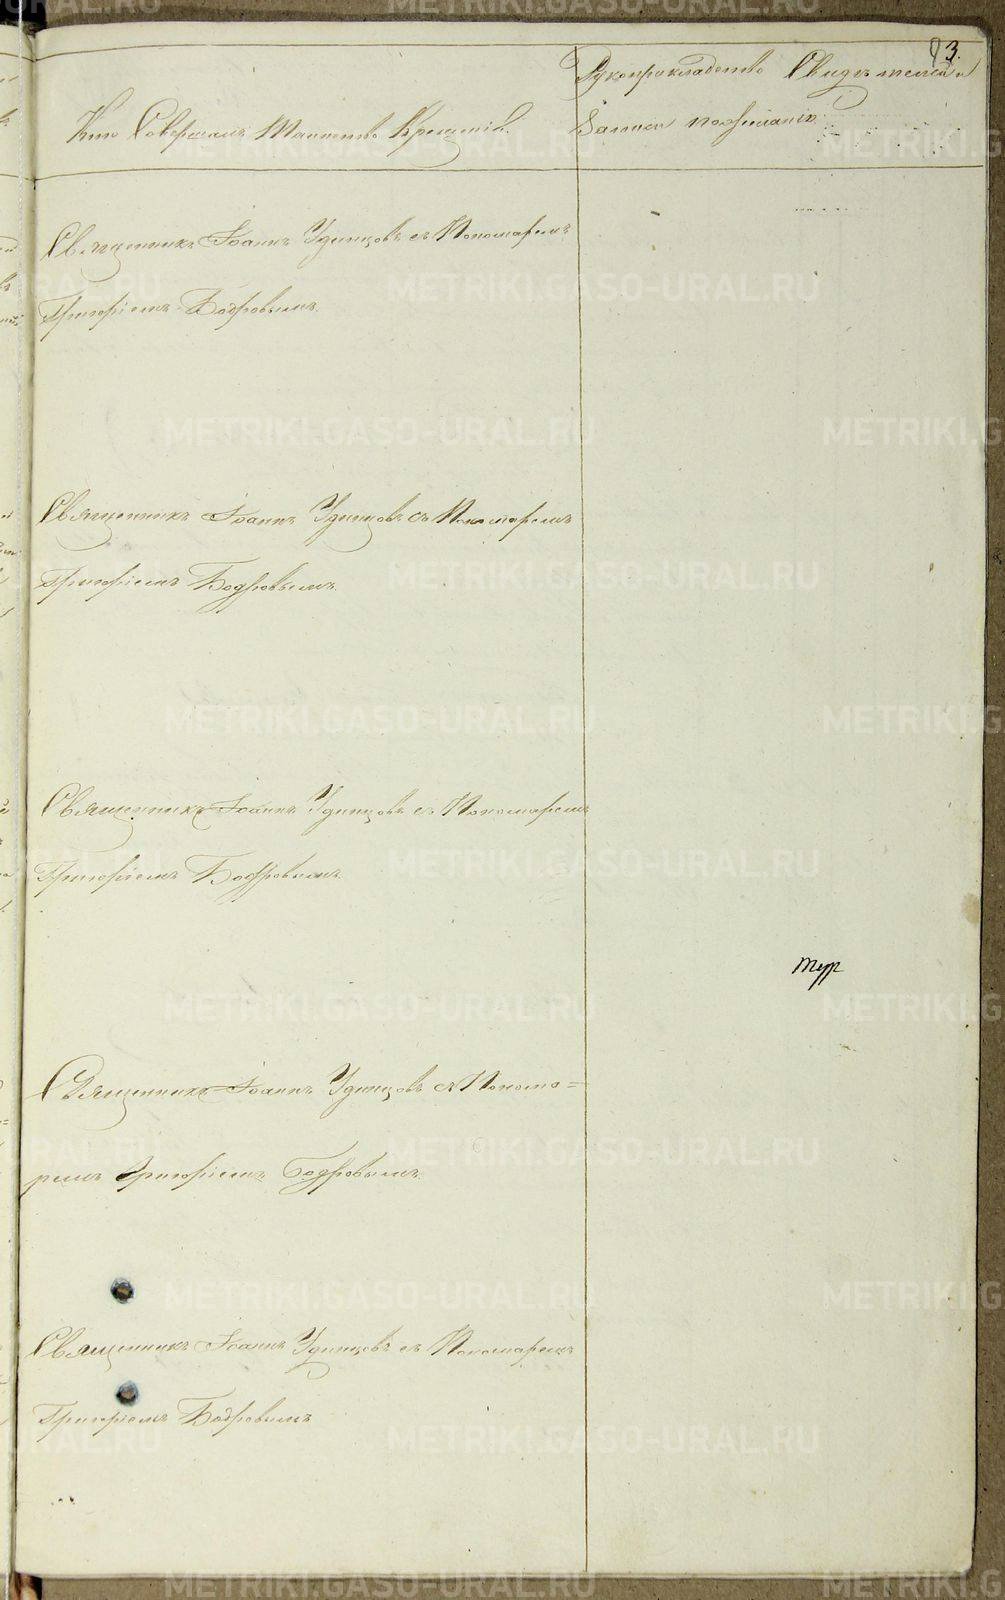 83.
Рукоприкладство Свидетелей и
Кто Совершалъ Таинство Крещенія.
Записи по желанію.
Священникъ Іоаннъ Удинцовъ съ Пономаремъ
Григоріемъ Бодровымъ.
Священникъ Іоаннъ Удинцовъ съ Пономаремъ
Григоріемъ Бодровымъ.
Священникъ Іоаннъ Удинцовъ съ Пономаремъ
Григоріемъ Бодровымъ.
Священникъ Іоаннъ Удинцовъ съ Понома=
ремъ Григоріемъ Бодровымъ.
Священникъ Іоаннъ Удинцовъ съ Пономаремъ
Григоріемъ Бодровымъ
METRIKI.GASO-URAL.RU